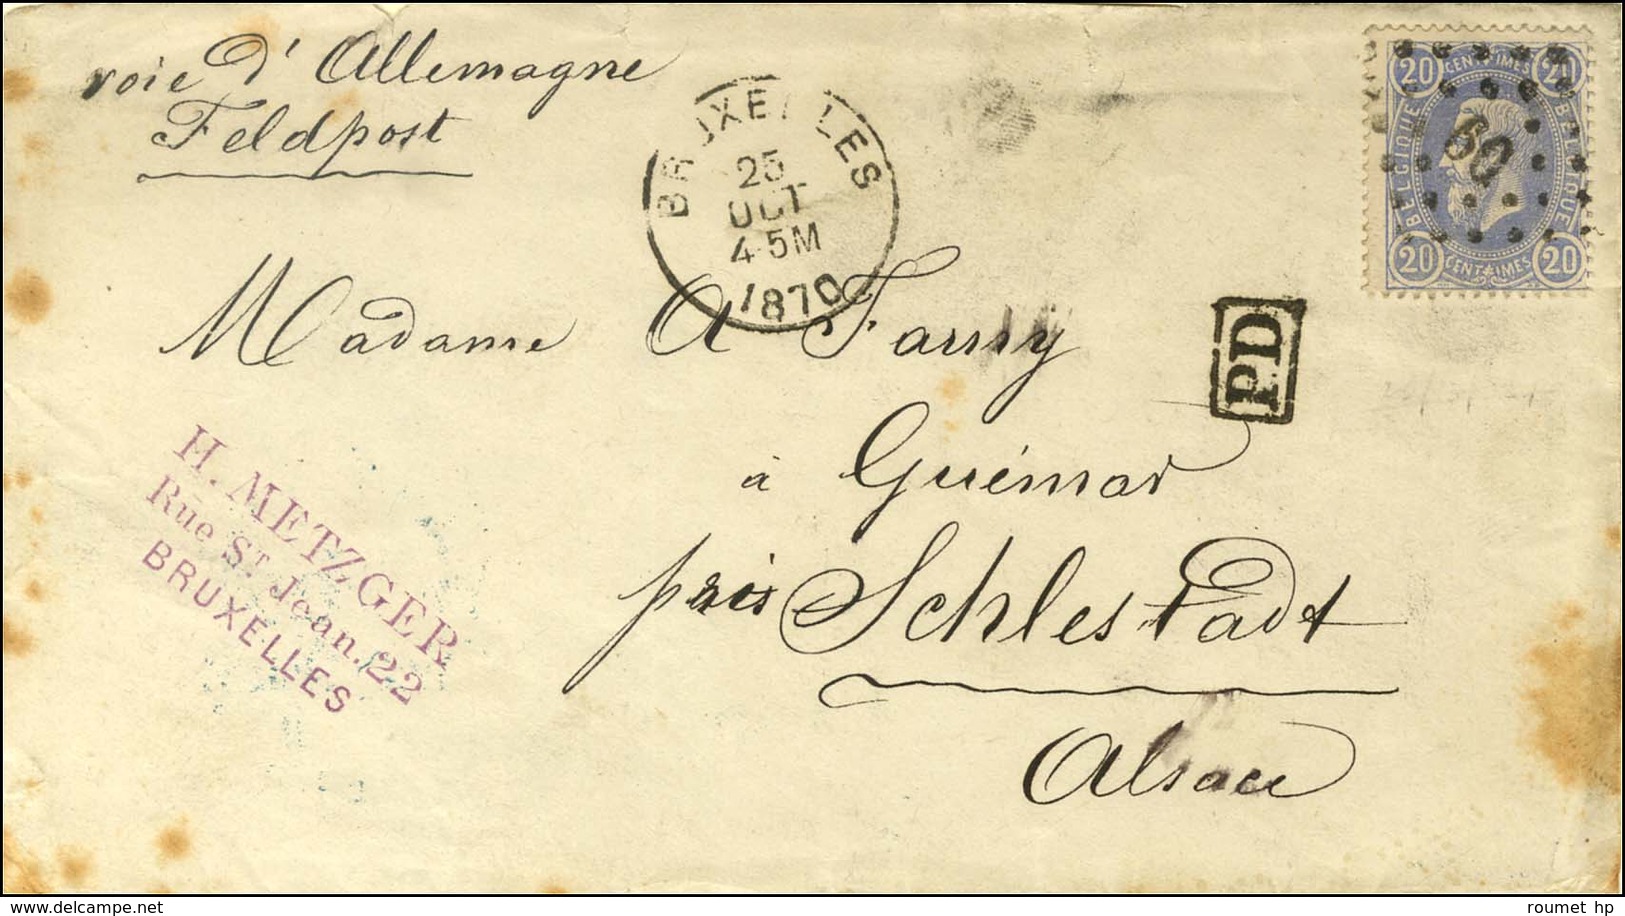 voie d'Allemagne
Feldpost
BRUXELLES
25
OCT
4-5M
1870
20 CENTIMES 20
BELGIQUE
BELGIQUE
60
20 CENTIMES 20
PD
Madame A Fanny
à Guémar
près Schlestadt
Alsace
H. METZGER
Rue St Jean. 22
BRUXELLES
delcampe.net
roumet_hp